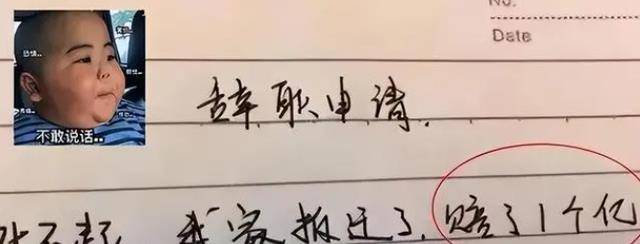 No.
Date
不敢说话..
辞职申请.
对不起, 我家拆迁了,赔了1个亿